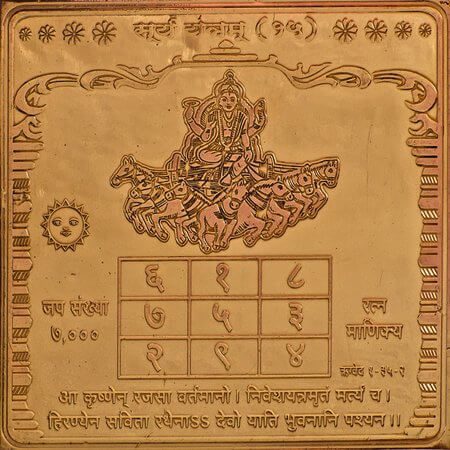 सूर्य यंत्रम् (१५)
६ १ ८
जप संख्या
७,०००
७ ५ ३
रत्न
माणिक्य
२ ९ ४
ऋग्वेद १-३५-२
आ कृष्णेन रजसा वर्तमानो। निवेशयन्नमृतं मर्त्यं च।
हिरण्येन सविता रथेनाऽऽ देवो याति भुवनानि पश्यन।।